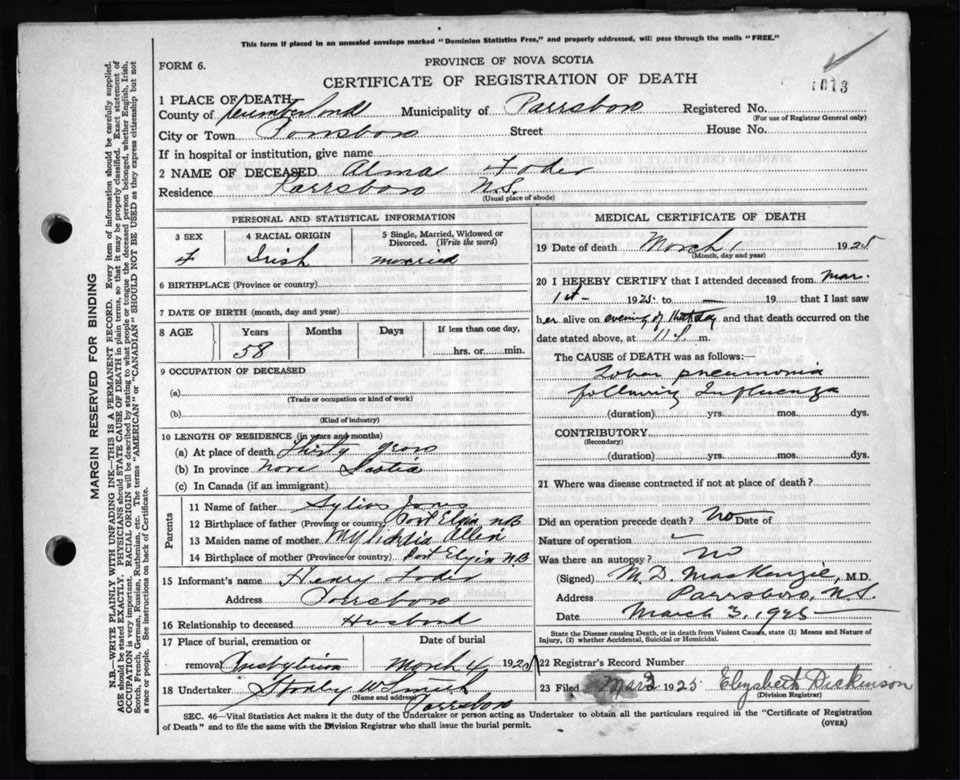 This form if placed in an unsealed envelope marked "Dominion Statistics Free," and properly addressed, will pass through the mails "FREE."
FORM 6.
PROVINCE OF NOVA SCOTIA
CERTIFICATE OF REGISTRATION OF DEATH
1013
1 PLACE OF DEATH
County of Cumberland Municipality of Parrsboro Registered No.
(For use of Registrar General only)
City or Town Parrsboro Street House No.
If in hospital or institution, give name
2 NAME OF DECEASED Alma
Residence Parrsboro N.S.
(Usual place of abode)
PERSONAL AND STATISTICAL INFORMATION
3 SEX 4 RACIAL ORIGIN 5 Single, Married, Widowed or Divorced. (Write the word)
F Irish married
6 BIRTHPLACE (Province or country)
7 DATE OF BIRTH (month, day and year)
8 AGE Years Months Days If less than one day,
58 hrs. or min.
9 OCCUPATION OF DECEASED
(a)
(Trade or occupation or kind of work)
(b)
(Kind of industry)
10 LENGTH OF RESIDENCE (in years and months)
(a) At place of death Thirty years
(b) In province Nova Scotia
(c) In Canada (if an immigrant)
Parents
11 Name of father
12 Birthplace of father (Province or country) Port Elgin NB
13 Maiden name of mother Allen
14 Birthplace of mother (Province or country) Port Elgin NB
15 Informant's name Henry
Address Parrsboro
16 Relationship to deceased Husband
17 Place of burial, cremation or Date of burial
removal Presbyterian March 4 1925
18 Undertaker Stanley W Smith
(Name and address)
Parrsboro
MEDICAL CERTIFICATE OF DEATH
19 Date of death March 1 1925
(Month, day and year)
20 I HEREBY CERTIFY that I attended deceased from Mar.
1st 1925 to — 19 that I last saw
her alive on evening of that day and that death occurred on the
date stated above, at m.
The CAUSE of DEATH was as follows:—
Lobar pneumonia
following Influenza
(duration) yrs. mos. dys.
CONTRIBUTORY
(Secondary)
(duration) yrs. mos. dys.
21 Where was disease contracted if not at place of death?
Did an operation precede death? No Date of
Nature of operation
Was there an autopsy? no
(Signed) M. D. MacKenzie, M.D.
Address Parrsboro, N.S.
Date March 3, 1925
State the Disease causing Death, or in death from Violent Causes, state (1) Means and Nature of Injury, (2) whether Accidental, Suicidal or Homicidal.
22 Registrar's Record Number
23 Filed Mar 1925 Elizabeth Dickinson
(Division Registrar)
SEC. 46—Vital Statistics Act makes it the duty of the Undertaker or person acting as Undertaker to obtain all the particulars required in the "Certificate of Registration
of Death" and to file the same with the Division Registrar who shall issue the burial permit.
(OVER)
MARGIN RESERVED FOR BINDING
N.B.—WRITE PLAINLY WITH UNFADING INK—THIS IS A PERMANENT RECORD. Every item of information should be carefully supplied.
AGE should be stated EXACTLY. PHYSICIANS should STATE CAUSE OF DEATH in plain terms, so that it may be properly classified. Exact statement of
OCCUPATION is very important. RACIAL ORIGIN will be described by stating to what people or tongue the deceased person belonged, whether English, Irish,
Scotch, French, German, Russian, Ruthenian, etc. The terms "AMERICAN" or "CANADIAN" SHOULD NOT BE USED as they express citizenship but not
a race or people. See instructions on back of Certificate.